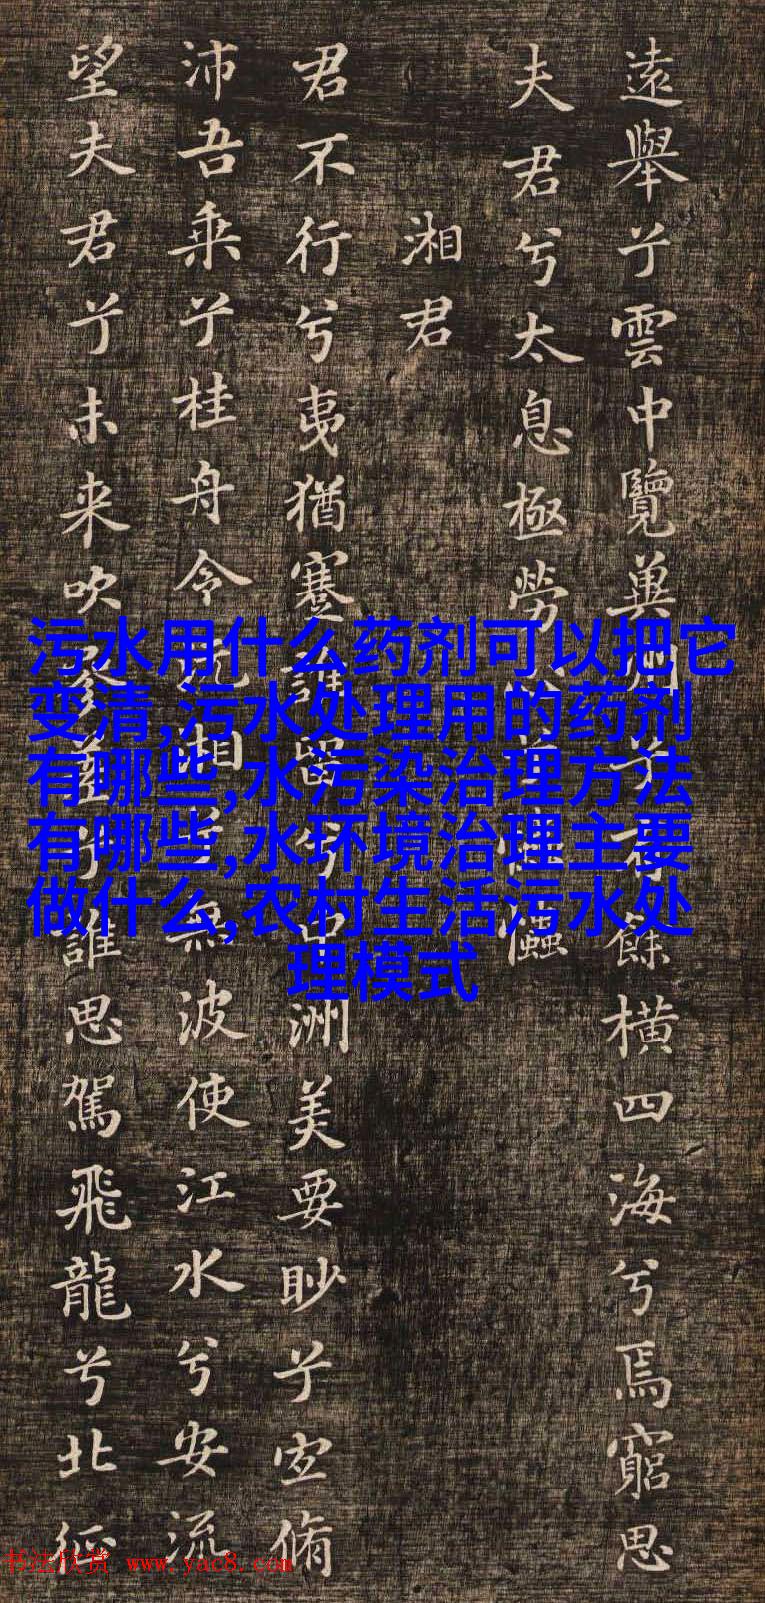 遠舉兮雲中覽兾州兮有餘橫四海兮焉窮思
夫君兮太息極勞心兮
湘君
君不行兮夷猶蹇誰留兮中洲美要眇兮宜脩
沛吾乘兮桂舟令沅湘兮無波使江水兮安流
望夫君兮未来吹參差兮誰思駕飛龍兮北征
污水用什么药剂可以把它
变清,污水处理用的药剂
有哪些,水污染治理方法
有哪些,水环境治理主要
做什么,农村生活污水处
理模式
书法欣赏 www.yac8.com